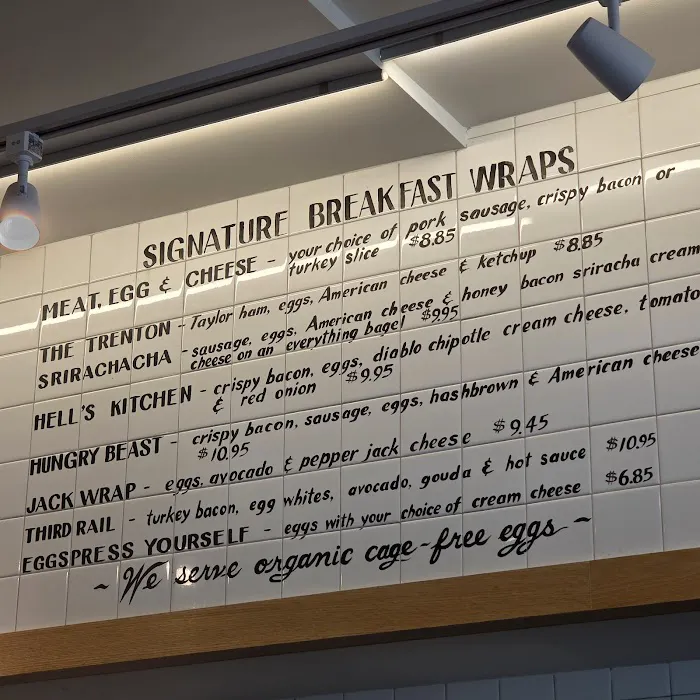 SIGNATURE BREAKFAST WRAPS
MEAT, EGG & CHEESE - your choice of pork sausage, crispy bacon or
turkey slice $8.85
THE TRENTON - Taylor ham, eggs, American cheese & ketchup $8.85
SRIRACHACHA - sausage, eggs, American cheese & honey bacon sriracha cream
cheese on an everything bagel $9.95
HELL'S KITCHEN - crispy bacon, eggs, diablo chipotle cream cheese, tomato
& red onion $9.95
HUNGRY BEAST - crispy bacon, sausage, eggs, hashbrown & American cheese
$10.95
JACK WRAP - eggs, avocado & pepper jack cheese $9.45
THIRD RAIL - turkey bacon, egg whites, avocado, gouda & hot sauce $10.95
EGGSPRESS YOURSELF - eggs with your choice of cream cheese $6.85
~ We serve organic cage-free eggs ~